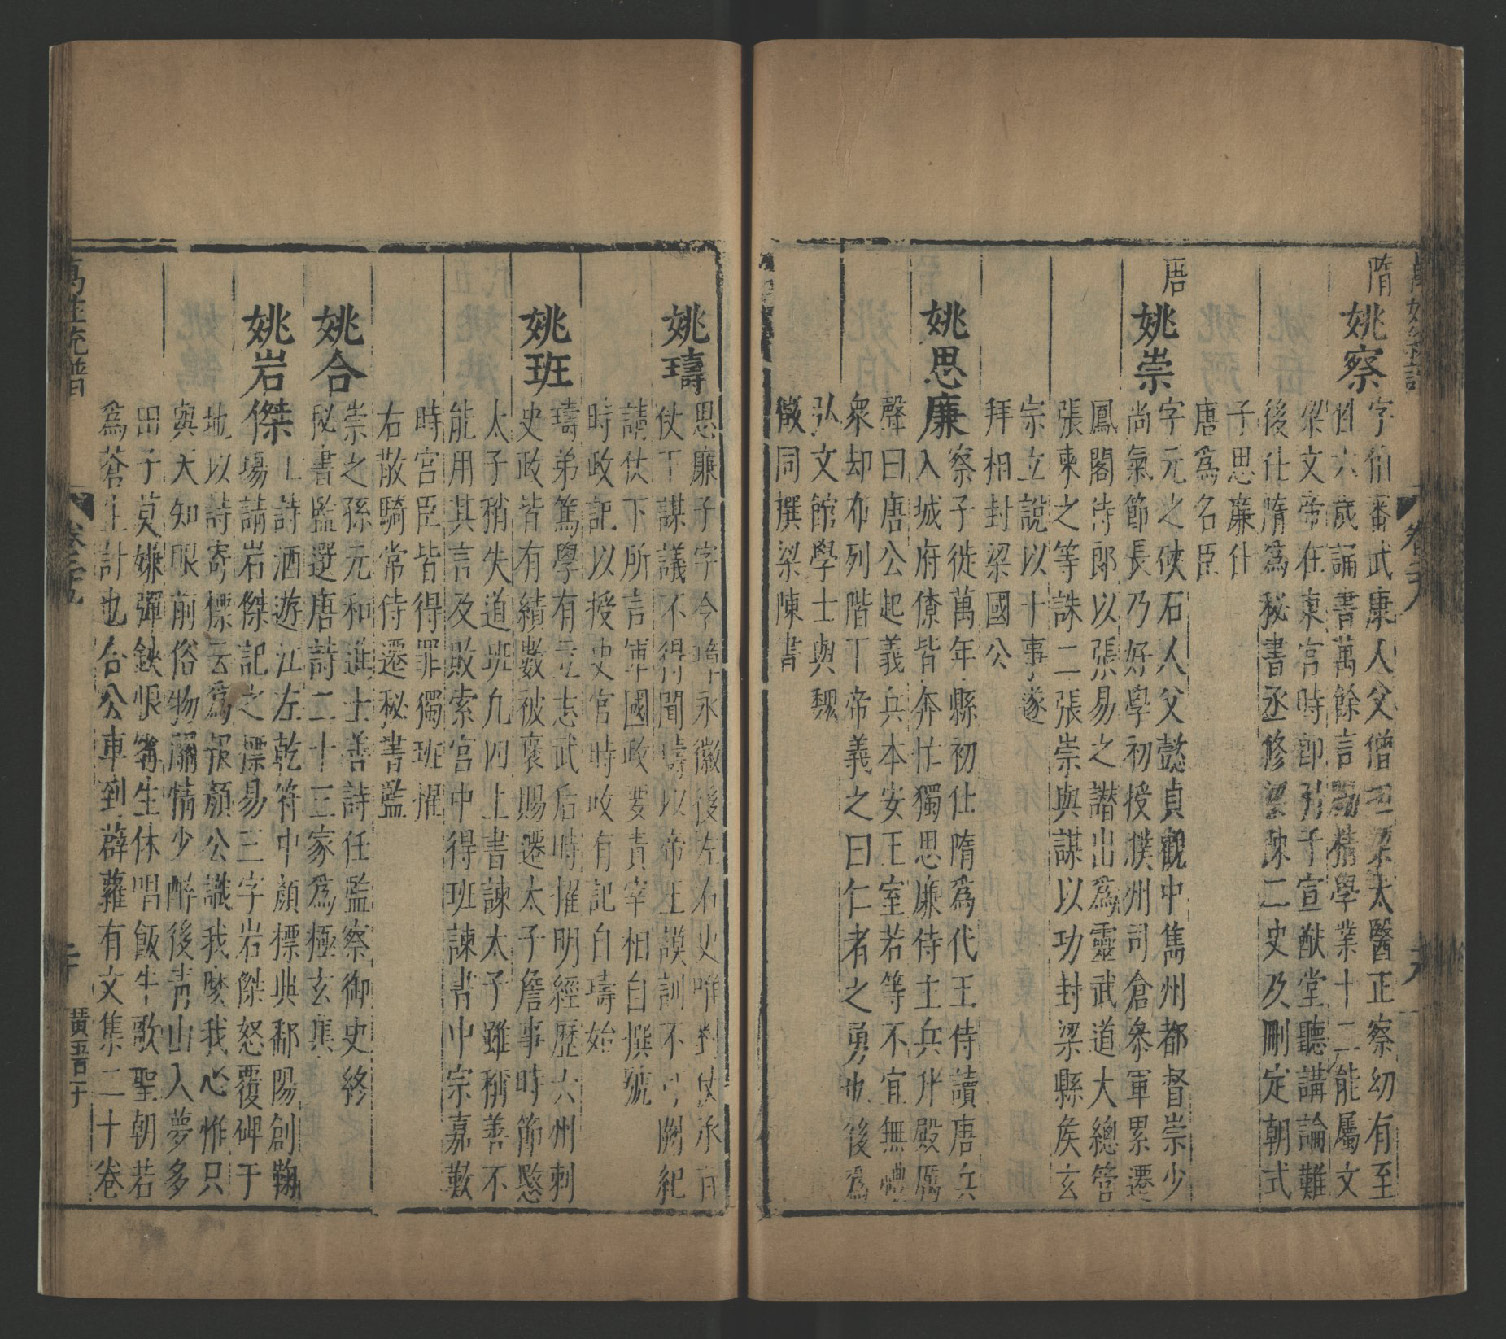 萬姓統譜
卷之二十九
隋
姚察 字伯審武康人父僧垣梁太醫正察幼有至
性六歲誦書萬餘言勵精學業十二能屬文
梁文帝在東宮時即引于宣猷堂聽講論難
後仕隋爲秘書丞修梁陳二史及刪定朝式
子思廉仕
唐爲名臣
唐
姚崇 字元之硤石人父懿貞觀中雋州都督崇少
尚氣節長乃好學初授濮州司倉參軍累遷
鳳閣侍郎以張易之譖出爲靈武道大總管
張柬之等誅二張崇與謀以功封梁縣矦玄
宗立說以十事遂
拜相封梁國公
姚思廉 察子徙萬年縣初仕隋爲代王侍讀唐兵
入城府僚皆奔忙獨思廉侍主兵升殿厲
聲曰唐公起義兵本安王室若等不宜無禮
衆却布列階下帝義之曰仁者之勇也後爲
弘文館學士與魏
徵同撰梁陳書
姚璹 思廉子字令璋永徽後左右史唯對仗承旨
仗下謀議不得聞璹以帝王謨訓不可闕紀
請仗下所言軍國政要責宰相自撰號
時政記以授史官時政有記自璹始
姚班 璹弟篤學有立志武后時擢明經歷六州刺
史政皆有績數被褒賜遷太子詹事時節愍
太子稍失道班凡四上書諫太子雖稱善不
能用其言及敗索宮中得班諫書中宗嘉歎
時宮臣皆得罪獨班擢
右散騎常侍遷秘書監
姚合 崇之孫元和進士善詩任監察御史終
秘書監選唐詩二十三家爲極玄集
姚岩傑 工詩酒遊江左乾符中顏標典鄱陽創鞠
場請岩傑記之標易三字岩傑怒覆碑于
地以詩寄標云爲報顏公識我麽我心惟只
與天知眼前俗物關情少醉後青山入夢多
田子莫嫌彈鋏恨甯生休唱飯牛歌聖朝若
爲蒼生計也合公車到薜蘿有文集二十卷
萬姓統譜
卷之二十九
二十